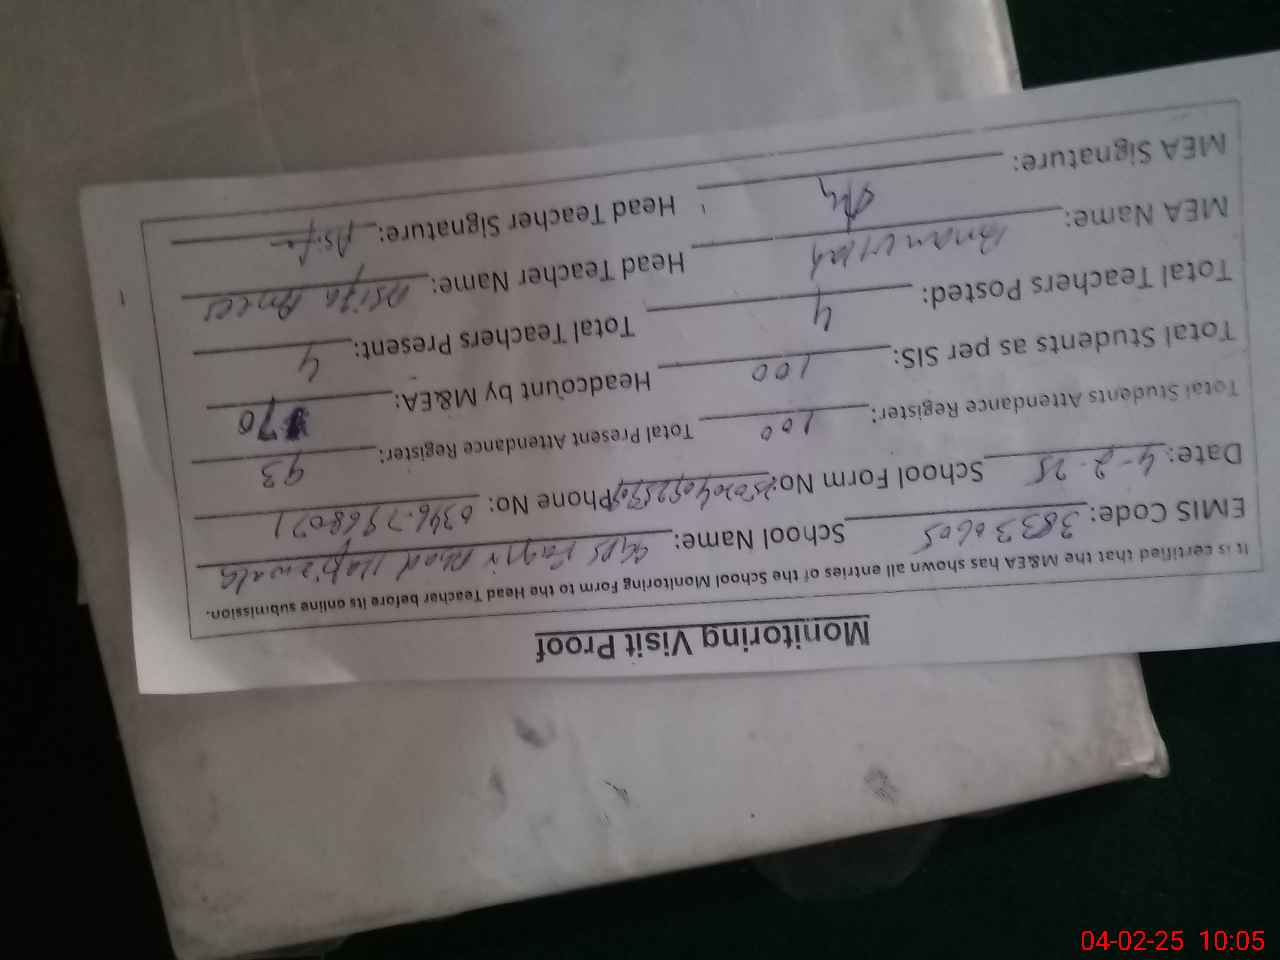 Monitoring Visit Proof
It is certified that the M&EA has shown all entries of the School Monitoring Form to the Head Teacher before its online submission.
EMIS Code: 38330605 School Name: GGPS
Date: 4-2-25 School Form No: Phone No: 0346-7968071
Total Students Attendance Register: 100 Total Present Attendance Register: 93
Total Students as per SIS: 100 Headcount by M&EA: 70
Total Teachers Posted: 4 Total Teachers Present: 4
MEA Name: Head Teacher Name: Asifa
MEA Signature: Head Teacher Signature: Asifa
04-02-25 10:05